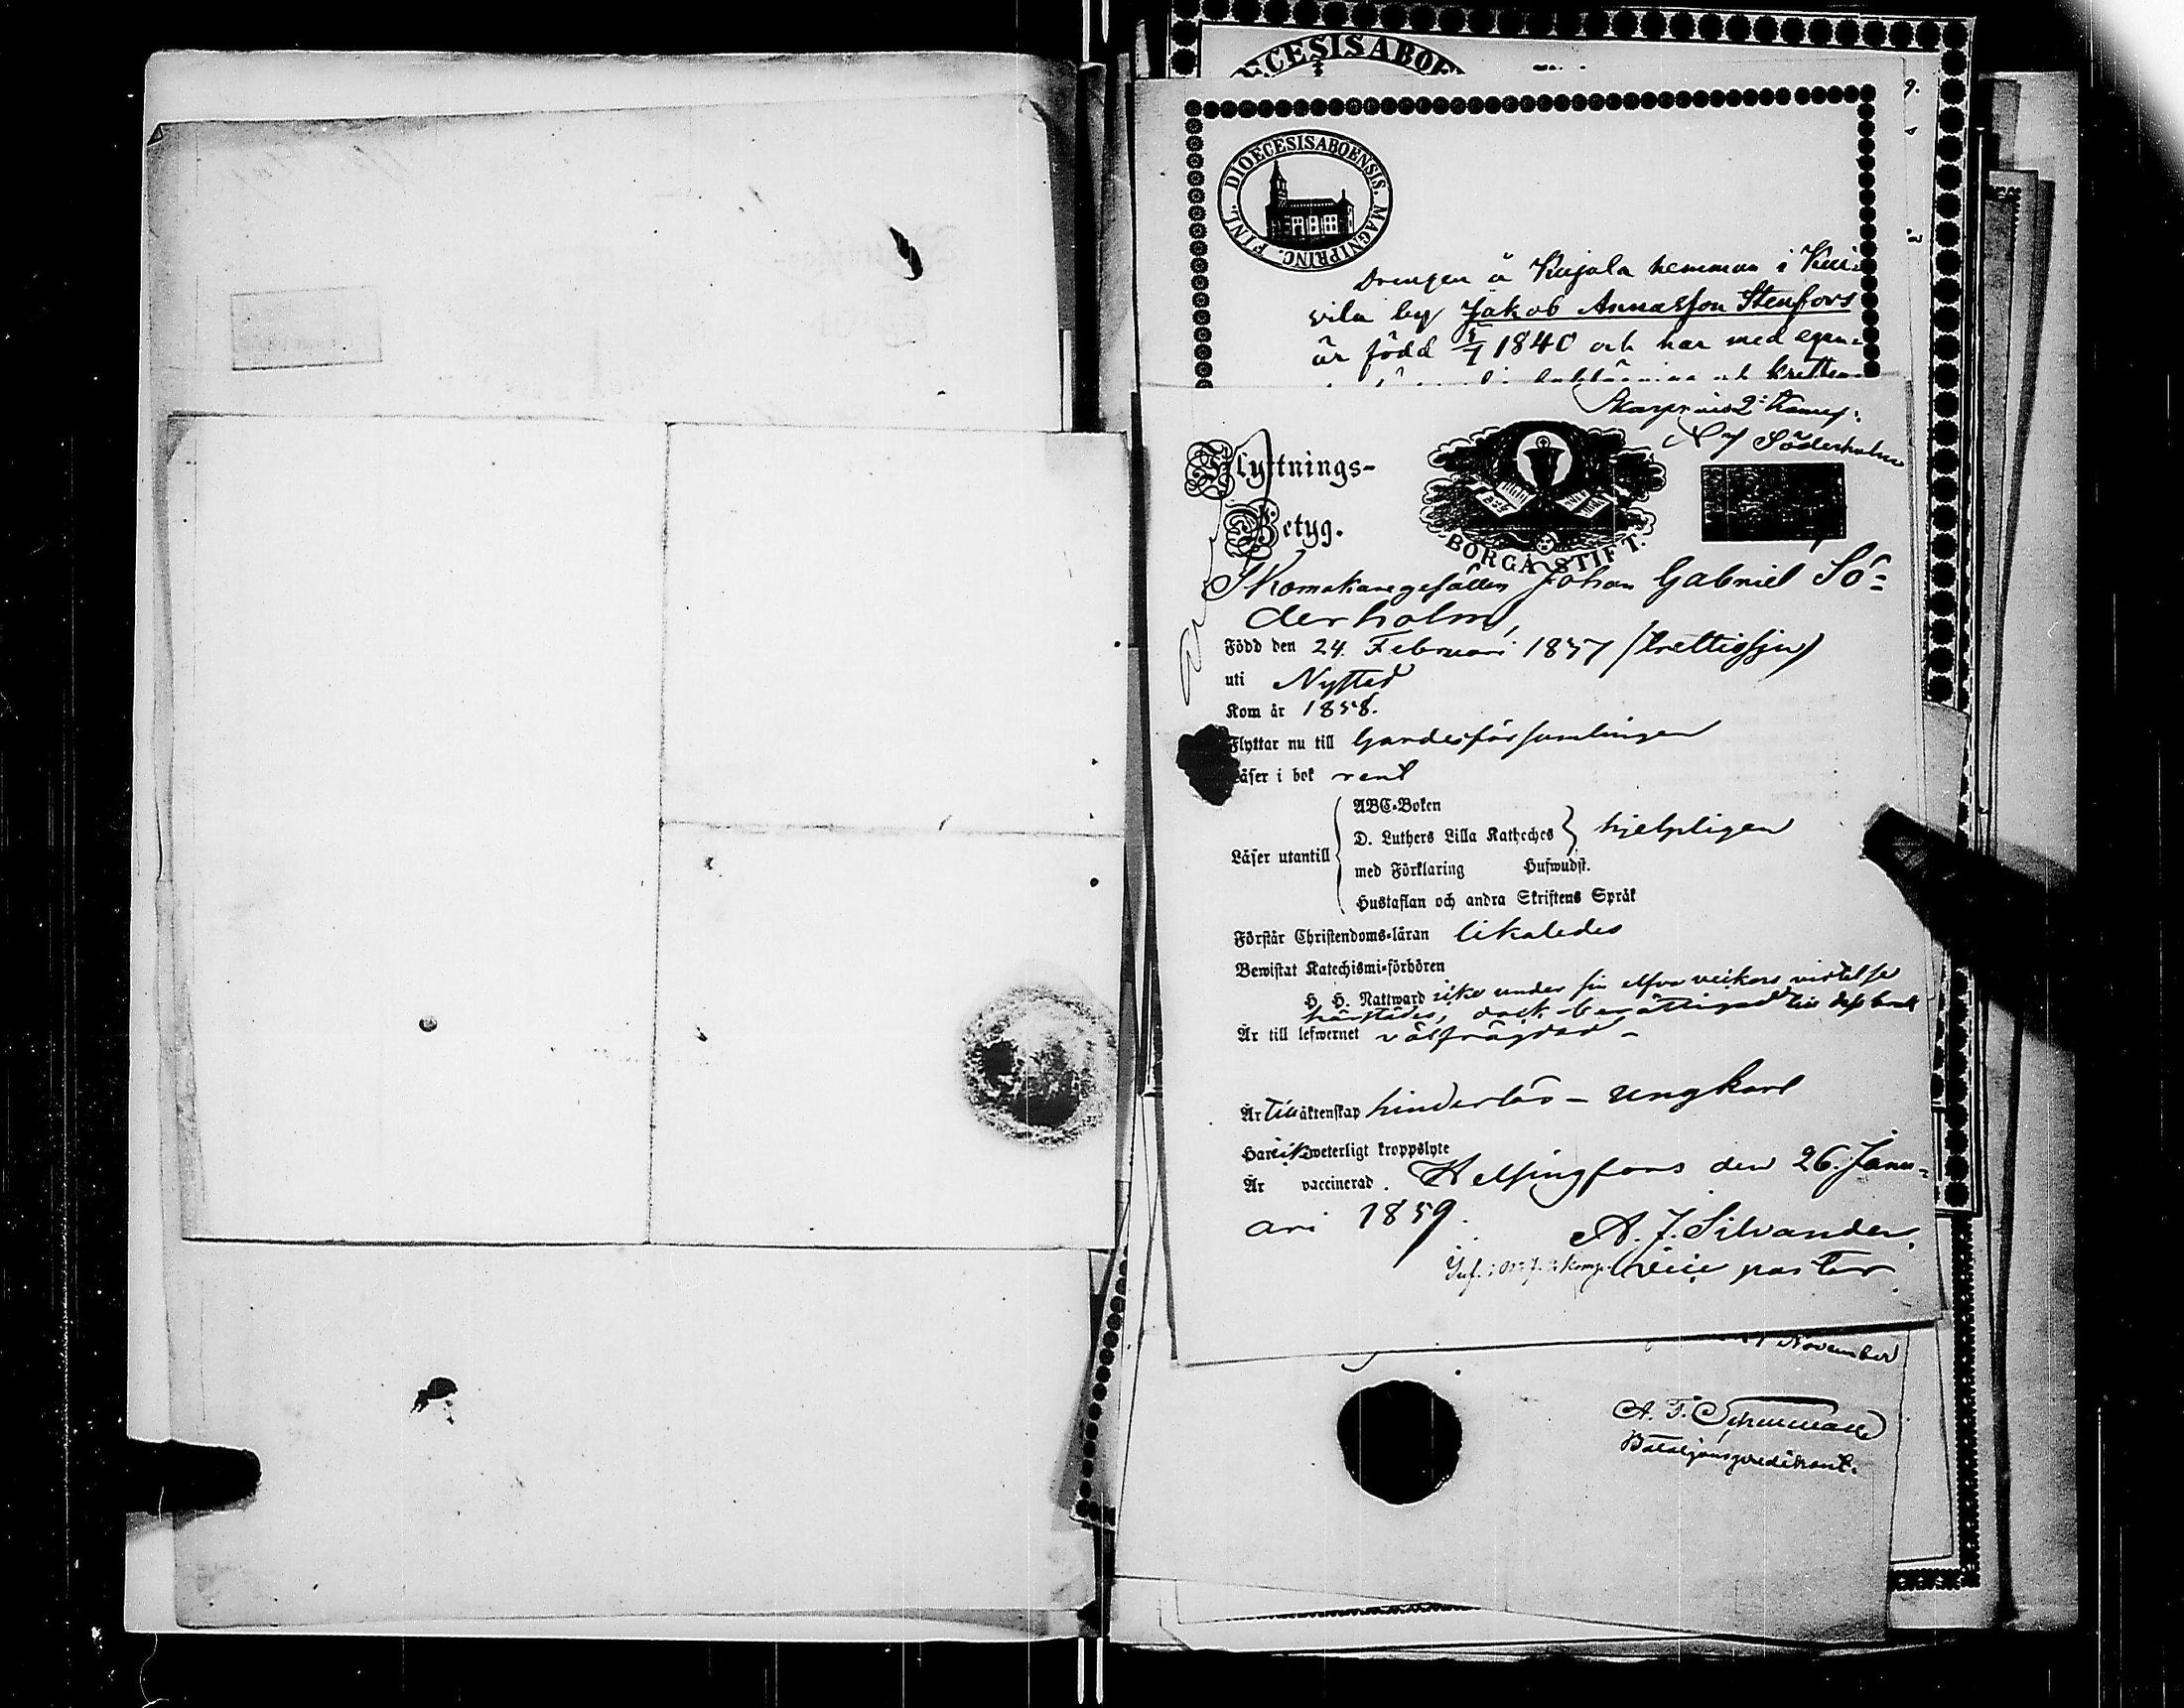 ECESISABOE
DIOECESISABOENSIS. MAGNIPRINC. FINL.
Drengen å Kujala hemman i Kui-
vila by Jakob Annasson Stenfors
är född 5/7 1840 och har med egen-
Skarpsk. 2. Komp.
N 7 Söderholm
Flyttnings-
Betyg.
BORGÅ STIFT.
Skomakaregesällen Johan Gabriel Sö-
derholm,
Född den 24. Februari 1837 (trettiosju)
uti Nystad
Kom år 1858.
Flyttar nu till Gardesförsamlingen
Läser i bok rent
Läser utantill
ABC-Boken
D. Luthers Lilla Katheches } hjelpligen
med Förklaring Hufwudst.
Hustaflan och andra Skriftens Språk
Förstår Christendoms-läran likaledes
Bewistat Katechismi-förhören
H. H. Nattward icke under sin elfva veckors vistelse
härstädes, dock berättigad till dess bruk
Är till lefwernet välfrägdad –
Är till äktenskap hinderlös – ungkarl
Har icke weterligt kroppslyte
Är vaccinerad. Helsingfors den 26. Janu-
ari 1859.
A. J. Silvander.
vice pastor.
November
A. F. Schauman
Bataljonspredikant.